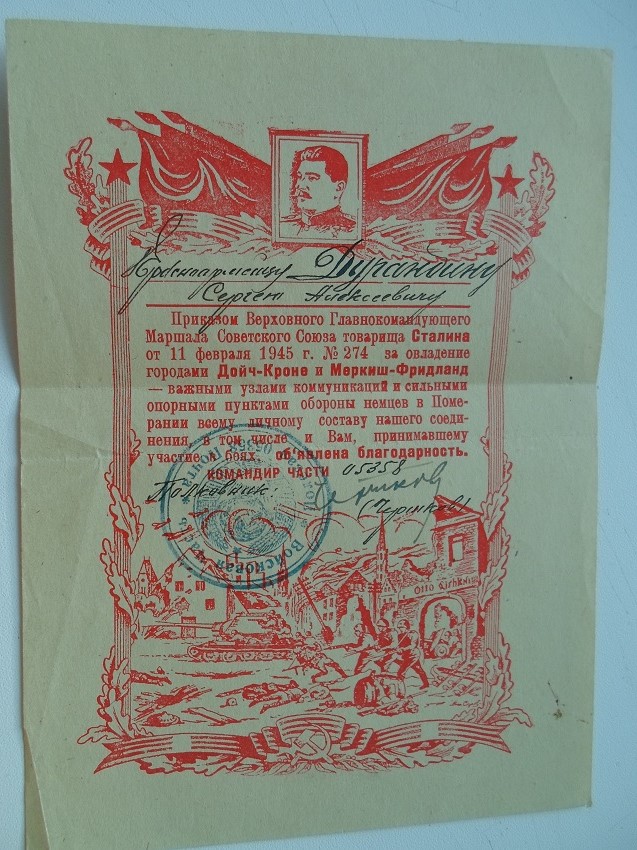 Красноармейцу Дурандину
Сергею Алексеевичу
Приказом Верховного Главнокомандующего
Маршала Советского Союза товарища Сталина
от 11 февраля 1945 г. № 274 за овладение
городами Дойч-Кроне и Меркиш-Фридланд
— важными узлами коммуникаций и сильными
опорными пунктами обороны немцев в Поме-
рании всему личному составу нашего соеди-
нения, в том числе и Вам, принимавшему
участие в боях, об'явлена благодарность.
КОМАНДИР ЧАСТИ 05358
Полковник:
Войсковая часть
05358
почта
Otto